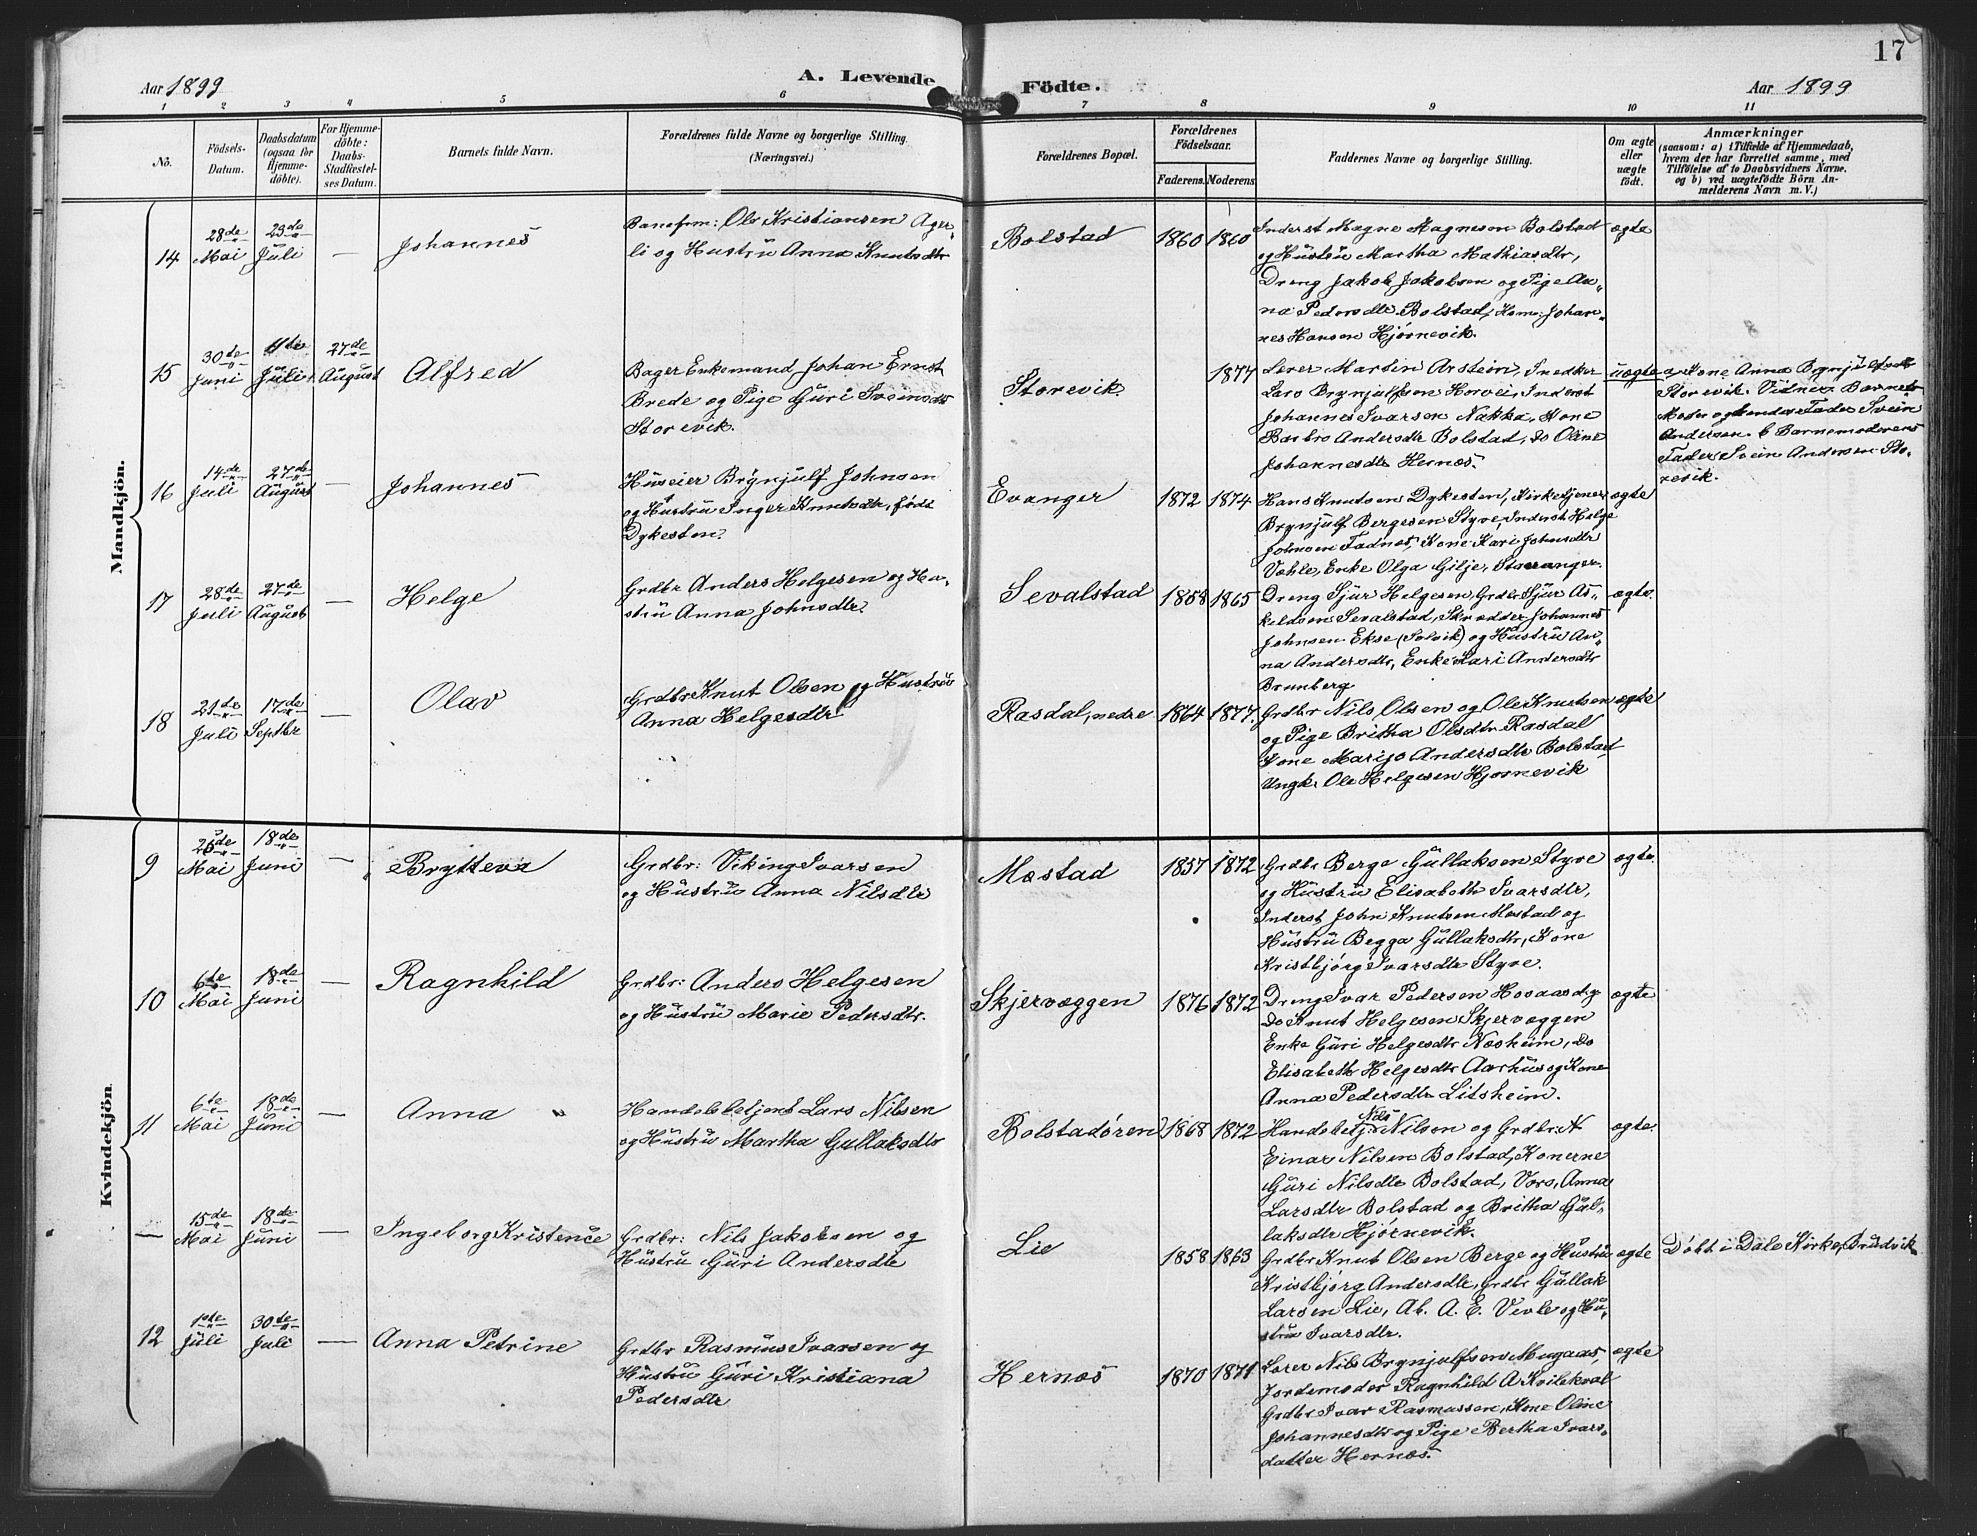 17
Aar 1899
A. Levende
Födte.
Aar 1899
1 2 3 4 5 6 7 8 9 10 11
No.
Födsels-
Datum.
Daabsdatum
(ogsaa for
Hjemme-
döbte).
For Hjemme-
döbte:
Daabs-
Stadfæstel-
ses Datum.
Barnets fulde Navn.
Forældrenes fulde Navne og borgerlige Stilling.
(Næringsvei.)
Forældrenes Bopæl.
Forældrenes
Födselsaar.
Faderens. Moderens.
Faddernes Navne og borgerlige Stilling.
Om ægte
eller
uægte
födt.
Anmærkninger
(saasom: a) i Tilfælde af Hjemmedaab,
hvem der har forrettet samme, med
Tilföielse af to Daabsvidners Navne.
og b) ved uægtefödte Börn An-
melderens Navn m. V.)
Mandkjön.
14
28de
Mai
23de
Juli
—
Johannes
Baneform: Ole Kristiansen Ager-
li og Hustru Anna Knutsdtr
Bolstad
1860 1860
Inderst Magne Magnesen Bolstad
og Hustru Martha Mathiasdtr,
Dreng Jakob Jakobsen og Pige An-
na Pedersdtr Bolstad, Johan-
nes Hansen Hjørnevik.
ægte
15
30te
Juni
Juli
27de
August
Alfred
Bager Enkemand Johan Ernst
Brede og Pige Guri Sveinsdtr
Storevik.
Storevik.
1877
Lærer Martin Arstein, Snedker
Lars Brynjulfsen Horvei, Inderst
Johannes Ivarsen Nakka, Kone
Barbro Andersdtr Bolstad, Do Oline
Johannesdtr Hernæs.
uægte
a, Kone Anna Brynjulfsdtr
Storevik. Vidner Barnets
Moder og hendes Fader Svein
Andersen. b Barnemoderens
Fader Svein Andersen Sto-
revik.
16
14de
Juli
27de
August
—
Johannes
Huseier Brynjulf Johnsen
og Hustru Inger Knutsdtr, født
Dykesten.
Evanger
1872 1874
Hans Knutsen Dykesten, Kirketjener
Brynjulf Bergesen Styve, Inderst Helge
Johnsen Fadnes, Kone Kari Johnsdtr
Væhle, Enke Olga Gilje, Stavanger.
ægte
17
28de
Juli
27de
August
—
Helge
Grdbr Anders Helgesen og Hu-
stru Anna Johnsdtr
Sevalstad
1858 1865
Dreng Sjur Helgesen, Grdbr Sjur As-
keldsen Sevalstad, Skrædder Johannes
Johnsen Ekse (Solvik) og Hustru An-
na Andersdtr, Enke Kari Andersdtr
Brunberg
ægte.
18
21de
Juli
17de
Septbr
—
Olav
Grdbr Knut Olsen og Hustru
Anna Helgesdtr
Rasdal, nedre
1864 1877.
Grdbr Nils Olsen og Ole Knutsen
og Pige Britha Olsdtr Rasdal
Kone Marijo Andersdtr Bolstad
Ungk. Ole Helgesen Hjørnevik
ægte
Kvindekjön.
9
Mai
18de
Juni
—
Brytteva
Grdbr: Viking Ivarsen
og Hustru Anna Nilsdtr
Mestad
1857 1872
Grdbr Berge Gullaksen Styve
og Hustru Elisabeth Ivarsdtr,
Inderst John Knutsen Mestad og
Hustru Begga Gullaksdtr, Kone
Kristbjørg Ivarsdtr Styve.
ægte.
10
6te
Mai
18de
Juni
—
Ragnhild
Grdbr: Anders Helgesen
og Hustru Marie Pedersdtr.
Skjervæggen
1876 1872
Dreng Ivar Pedersen Hosaas dg
Do Knut Helgesen Skjervæggen
Enke Guri Helgesdtr Næsheim, Do
Elisabeth Helgesdtr Aarhus og Kone
Anna Pedersdtr Litsheim.
ægte
11
6te
Mai
18de
Juni
—
Anna "
Handelsbetjent Lars Nilsen
og Hustru Martha Gullaksdtr
Bolstadøren
1868 1872
Handsbetj. Nils Nilsen og Grdbr: N
Einar Nilsen Bolstad, Konerne
Guri Nilsdtr Bolstad, Vors, Anna
Larsdtr Bolstad og Britha Gul-
laksdtr Hjørnevik.
ægte.
—
15de
Mai
18de
Juni
—
Ingeborg Kristence
Grdbr: Nils Jakobsen og
Hustru Guri Andersdtr
Lie
1858 1863
Grdbr Knut Olsen Berge og Hustru
Kristbjørg Andersdtr, Grdbr Gullak
Larsen Lie, Ab. A. E. Vevle og Hu-
stru Ivarsdtr.
ægte
Døbt i Dale Kirke, Bruvik
12
1ste
Juli
30te
Juli
—
Anna Petrine
Grdbr Rasmus Ivarsen og
Hustru Guri Kristiana
Pedersdtr
Hernæs
1870 1871
Lærer Nils Brynjulfsen Mugaas,
Jordemoder Ragnhild A Kvilekval
Grdbr Ivar Rasmussen, Kone Oline
Johannesdtr og Pige Bertha Ivars-
datter Hernæs.
ægte